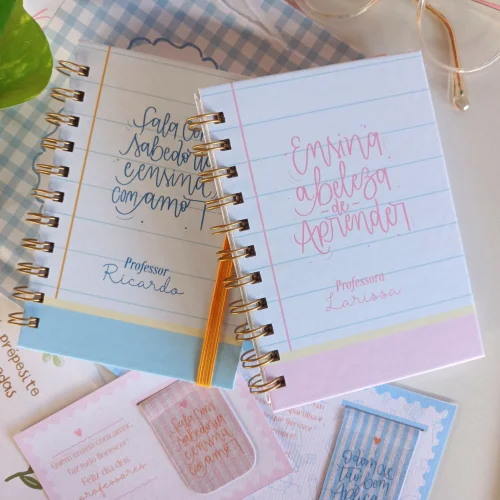 Fala com
sabedoria
e ensina
com amo
Professor
Ricardo
Ensina
a beleza
de
Aprender
Professora
Larissa
propósito
Quem ensina com amor,
faz tudo florescer!
Feliz dia dos
professores
Fala com
sabedoria
e ensina
com amor